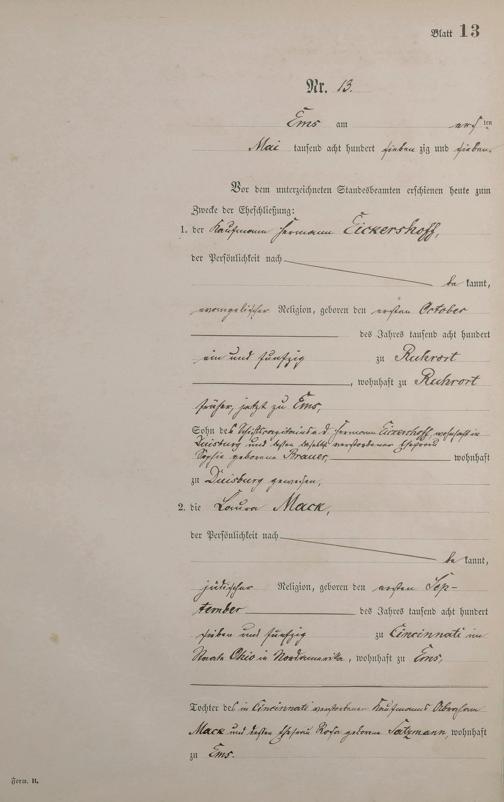 Blatt 13
Nr. 13.
Ems am ersten
Mai tausend acht hundert sieben zig und sieben.
Vor dem unterzeichneten Standesbeamten erschienen heute zum
Zwecke der Eheschließung:
1. der Kaufmann Hermann Eickershoff,
der Persönlichkeit nach
be kannt,
evangelischer Religion, geboren den ersten October
des Jahres tausend acht hundert
ein und funfzig zu Ruhrort
, wohnhaft zu Ruhrort
früher, jetzt zu Ems,
Sohn des a. d. Hermann Eickershoff, wohnhaft in
Duisburg und dessen daselbst verstorbener Ehefrau
Sophie geborene Brauer, wohnhaft
zu Duisburg gewesen,
2. die Laura Mack,
der Persönlichkeit nach
be kannt,
jüdischer Religion, geboren den ersten Sep-
tember des Jahres tausend acht hundert
sieben und funfzig zu Cincinnati im
Staate Ohio in Nordamerika, wohnhaft zu Ems,
Tochter des in Cincinnati verstorbenen Kaufmanns Abraham
Mack und dessen Ehefrau Rosa geborene Salzmann, wohnhaft
zu Ems.
Form. B.